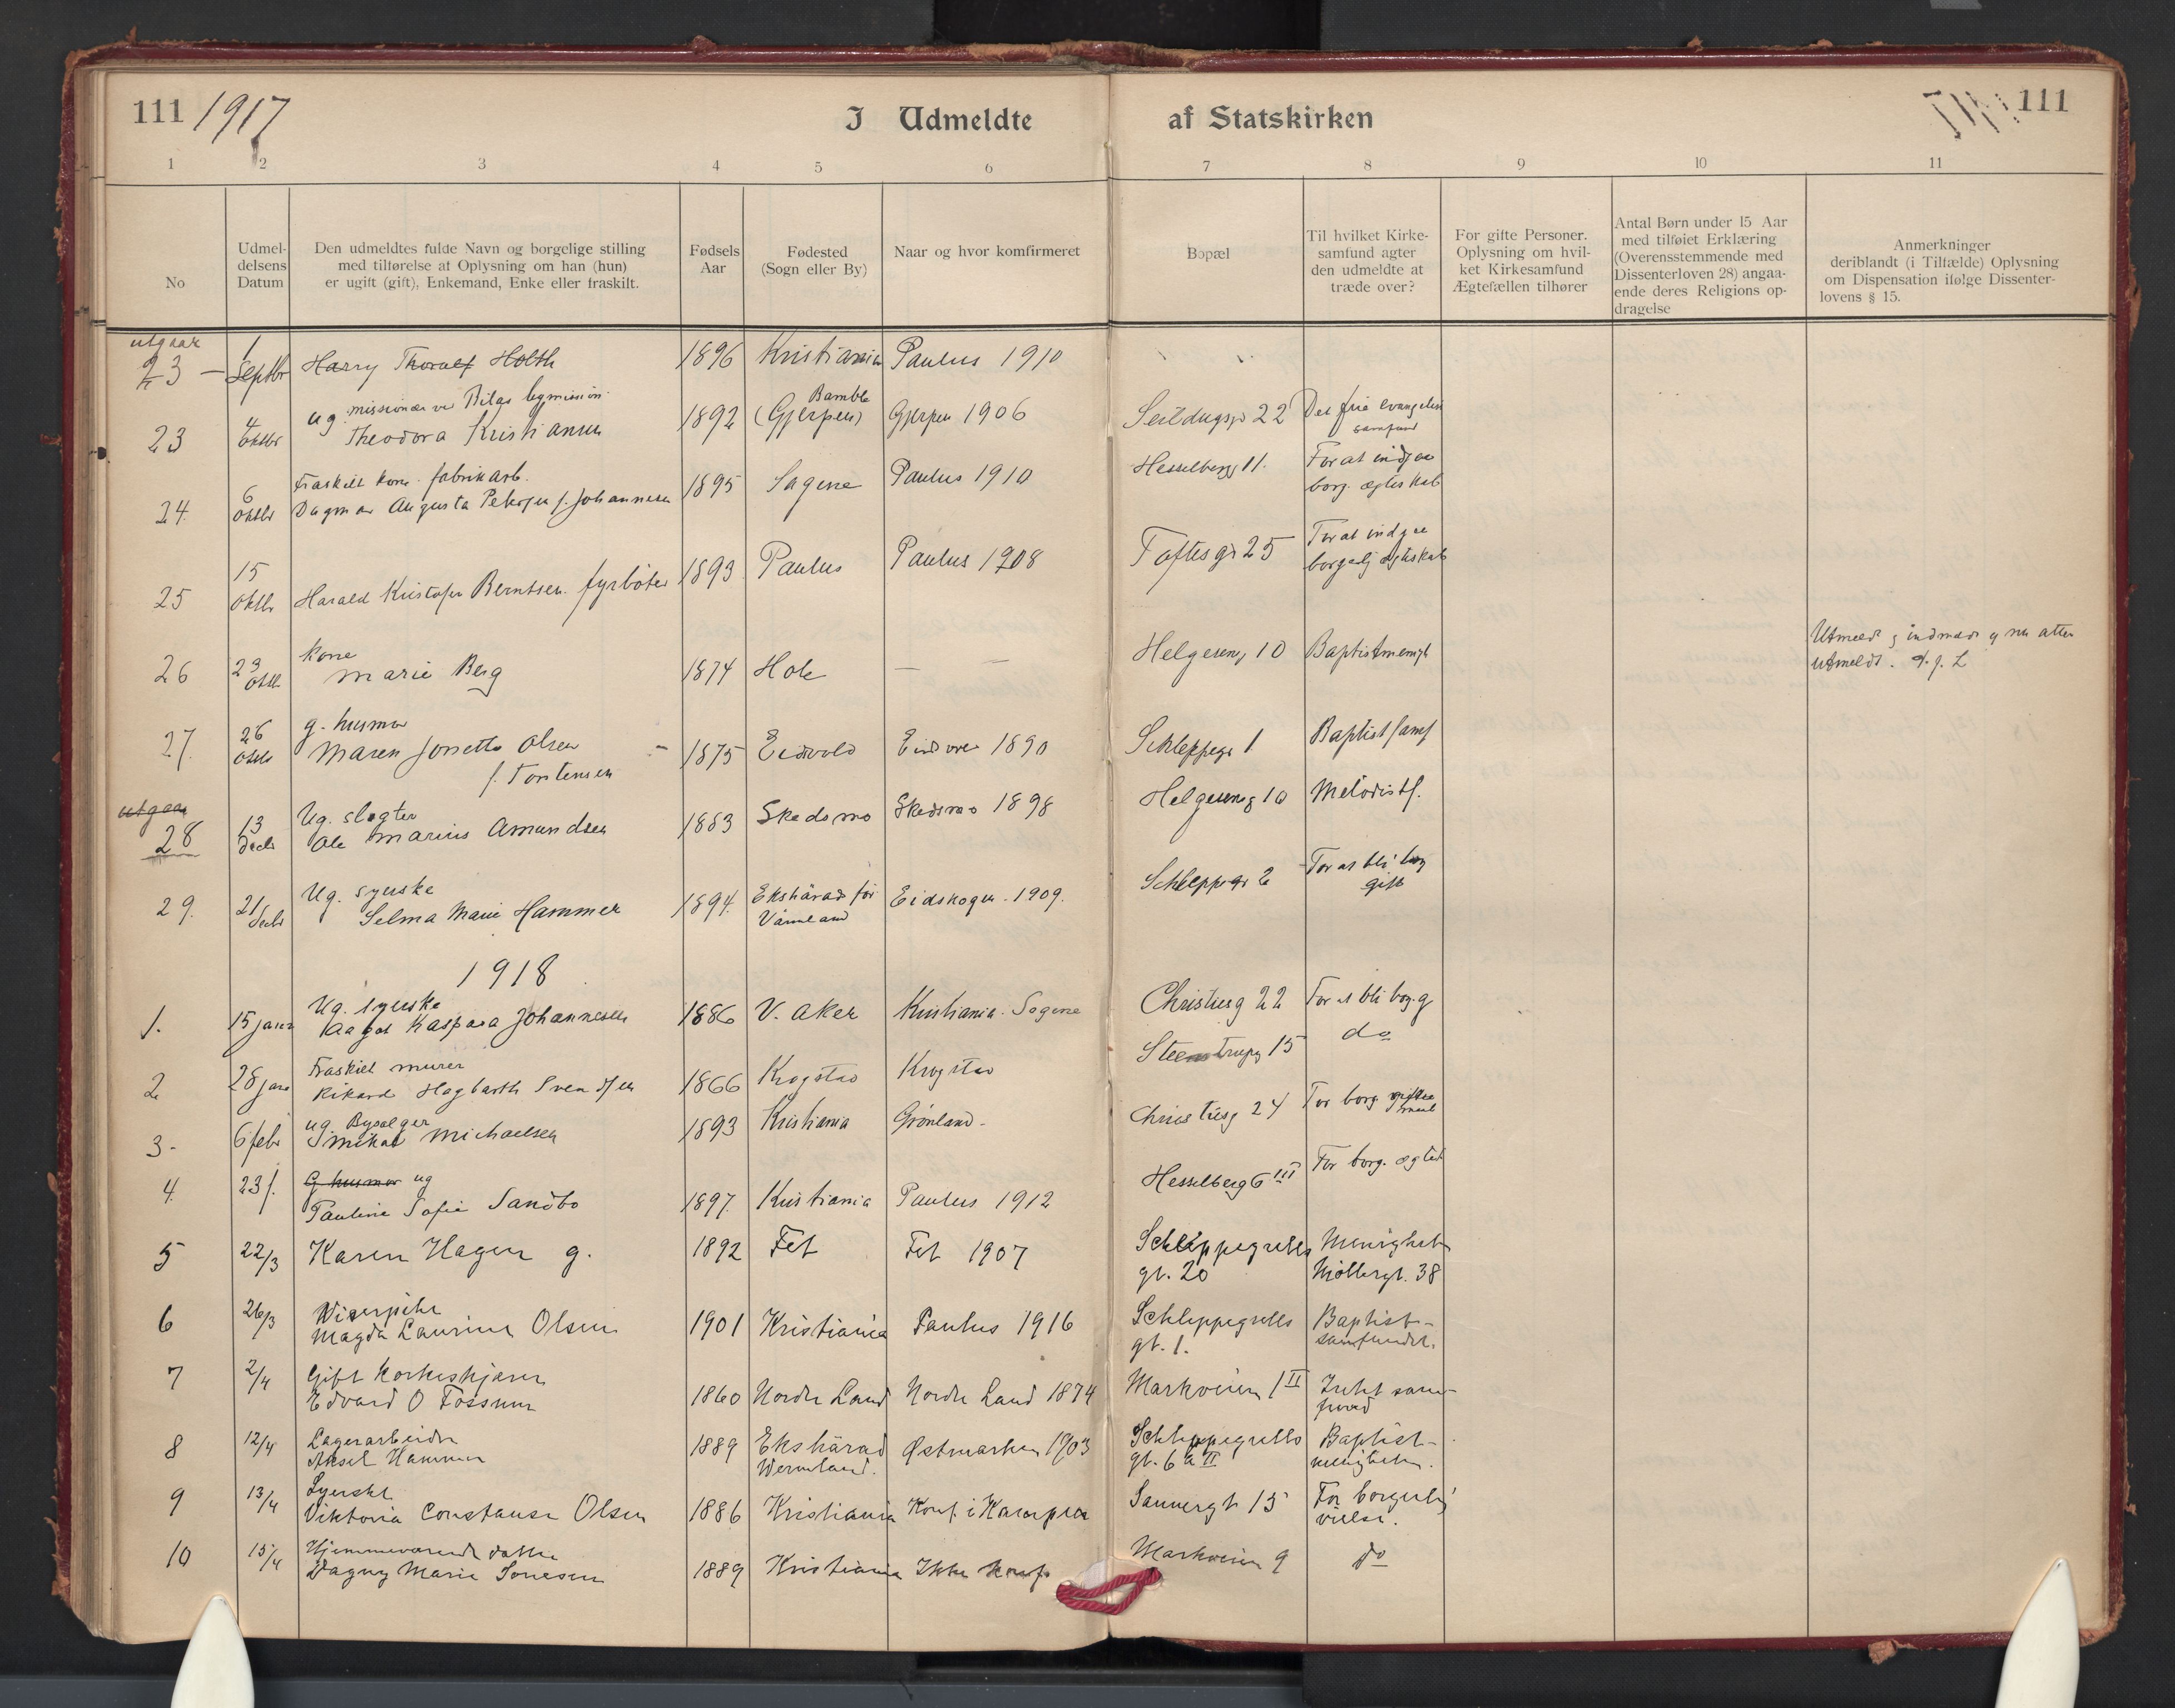 111 1917
I Udmeldte af Statskirken
111
1 2 3 4 5 6 7 8 9 10 11
No
Udmel-
delsens
Datum
Den udmeldtes fulde Navn og borgelige stilling
med tilførelse af Oplysning om han (hun)
er ugift (gift), Enkemand, Enke eller fraskilt.
Fødsels
Aar
Fødested
(Sogn eller By)
Naar og hvor komfirmeret
Bopæl
Til hvilket Kirke-
samfund agter
den udmeldte at
træde over?
For gifte Personer.
Oplysning om hvil-
ket Kirkesamfund
Ægtefællen tilhører
Antal Børn under 15 Aar
med tilføiet Erklæring
(Overensstemmende med
Dissenterloven 28) angaa-
ende deres Religions op-
dragelse
Anmerkninger
deriblandt (i Tilfælde) Oplysning
om Dispensation ifølge Dissenter-
lovens § 15.
utgaar
23 – 1 Septbr Harry Thoralf Holth 1896 Kristiania Paulus 1910
ug. missionær ved Bamble
23 4 Oktbr Theodora Kristiansen 1892 (Gjerpen) Gjerpen 1906 Seildugsg 22 Det frie evangelis
samfund
Fraskilt kone fabrikarb.
24. 6 Oktbr Dagmar Augusta Petersen f. Johannesen 1895 Sagene Paulus 1910 Hesselbergg 11. For at indgaa
borg. ægteskab
25 15 Oktbr Harald Kristofer Berntsen. fyrbøter 1893 Paulus Paulus 1908 Toftesgt 25 For at indgaa
borgerlig ægteskab
kone
26 23 Oktbr Marie Berg 1874 Hole — — Helgeseng 10 Baptistmenigh Utmeldt og indmeldt og nu atter
utmeldt.
g. husmor
27. 26 Oktbr Maren Jonette Olsen 1875 Eidsvold Eidsvold 1890 Schleppegr 1 Baptist samf
f. Torstensen
utgaar
Ug. slagter
28 13 Decbr Ole Marius Amundsen 1883 Skedsmo Skedsmo 1898 Helgeseng 10 Metodistf.
Ug. syerske
29. 21 Decbr Selma Marie Hammer 1894. Ekshärad för
Värmland Eidskogen. 1909. Schleppegr 2 For at bli borg
gift
1918
Ug. syerske
1. 15 januar Aagot Kaspara Johannesen 1886 V. Aker Kristiania. Sagene Christiesg 22 For at bli borg. g
Fraskilt murer
2 28 jan Rikard Hagbarth Svendsen 1866 Krogstad Krogstad Steenstrupg 15 do
ug Bysælger
3- 6 febr Mikal Michaelsen 1893 Kristiania Grønland- Christiesg 24 For borg. giftermaal
G husmor ug
4. 23/. Pauline Sofie Sandbo 1897. Kristiania Paulus 1912 Hesselberg 6 III For borg. ægtesk
5 22/3 Karen Hagen g. 1892 Fet Fet 1907 Schleppegrells
gt. 20 Menigheten
Møllergt. 38
Viserpike
6 26/3 Magda Laurine Olsen 1901 Kristiania Paulus 1916 Schleppegrells
gt. 1. Baptist-
samfundet.
Gift Korkeskjærer
7 2/4 Edvard O Fossum 1860 Nordre Land Nordre Land 1874 Markveien 1 II Intet sam-
fund
Lagerarbeider
8 12/4 Aksel Hammer 1889 Ekshärad
Wermland. Østmarken 1903 Schleppegrells
gt. 6 a II Baptist-
menigheten.
Syerske
9 13/4 Viktoria Constanse Olsen 1886 Kristiania Konf. i Kampen Sannergt 15 For borgerlig
vielse.
Hjemmeværende datter
10 15/4 Dagny Marie Sonesen 1889 Kristiania Ikke konf. Markveien 9 do